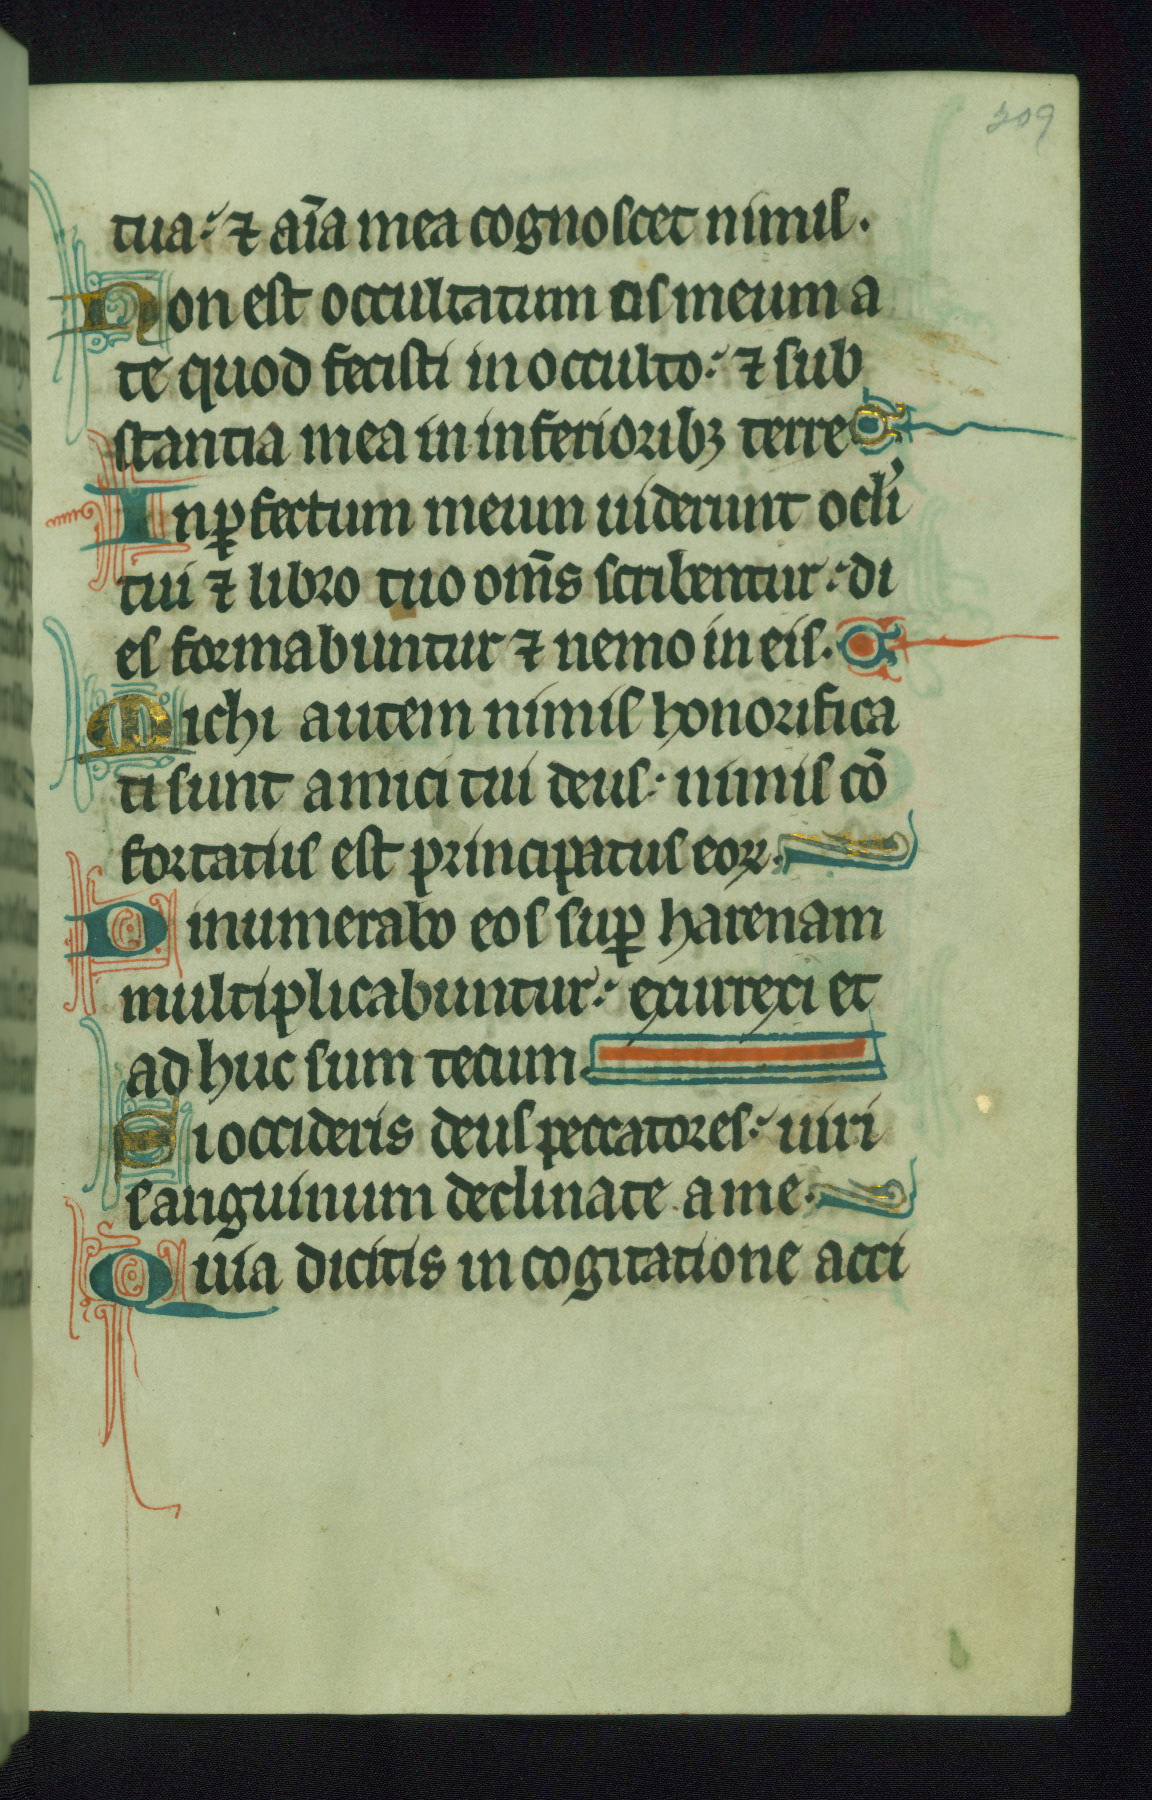 209
tua: ⁊ aīa mea cognoscet nimis.
Non est occultatum os meum a
te quod fecisti in occulto: ⁊ sub
stantia mea in inferioribꝫ terre
Inꝑfectum meum uiderunt ocli
tui ⁊ libro tuo om̄s scribentur: di
es formabuntur ⁊ nemo in eis.
Michi autem nimis honorifica
ti sunt amici tui deus: nimis cō
fortatus est principatus eoꝝ.
Dinumerabo eos suꝑ harenam
multiplicabuntur: exurrexi et
ad huc sum tecum.
Si occideris deus peccatores: uiri
sanguinum declinate a me.
Quia dicitis in cogitatione acci